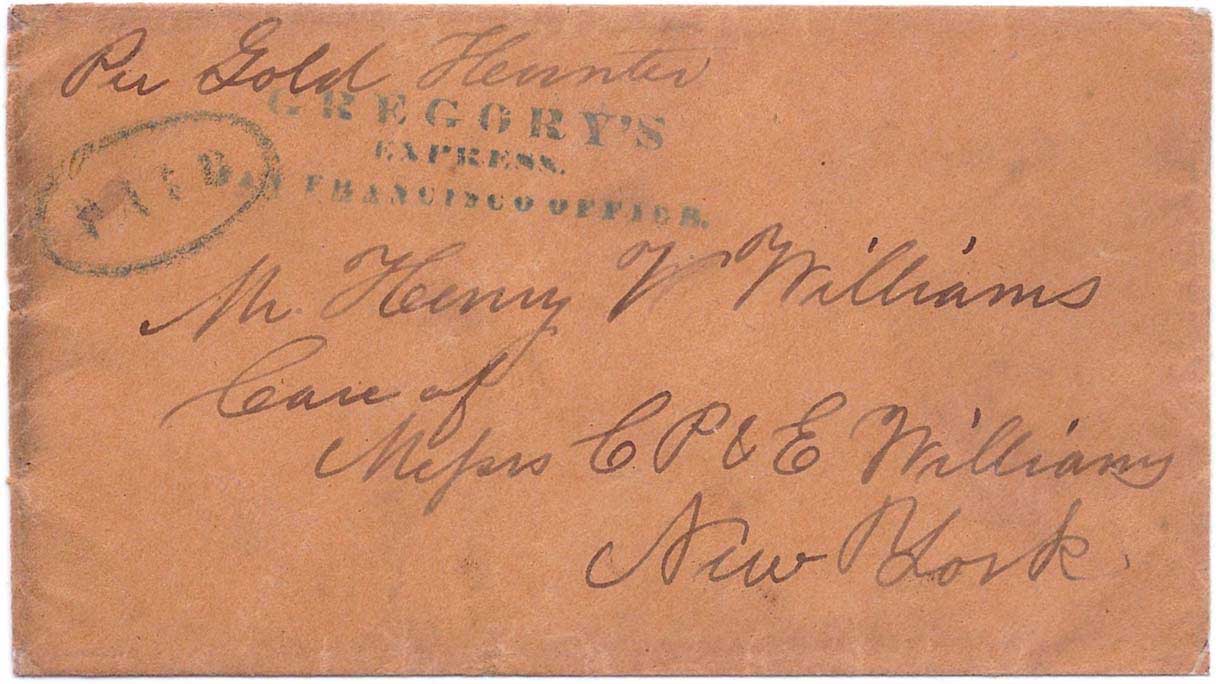 Per Gold Hunter
GREGORY'S
EXPRESS.
SAN FRANCISCO OFFICE.
PAID
Mr. Henry V Williams
Care of
Messrs C P & E Williams
New York